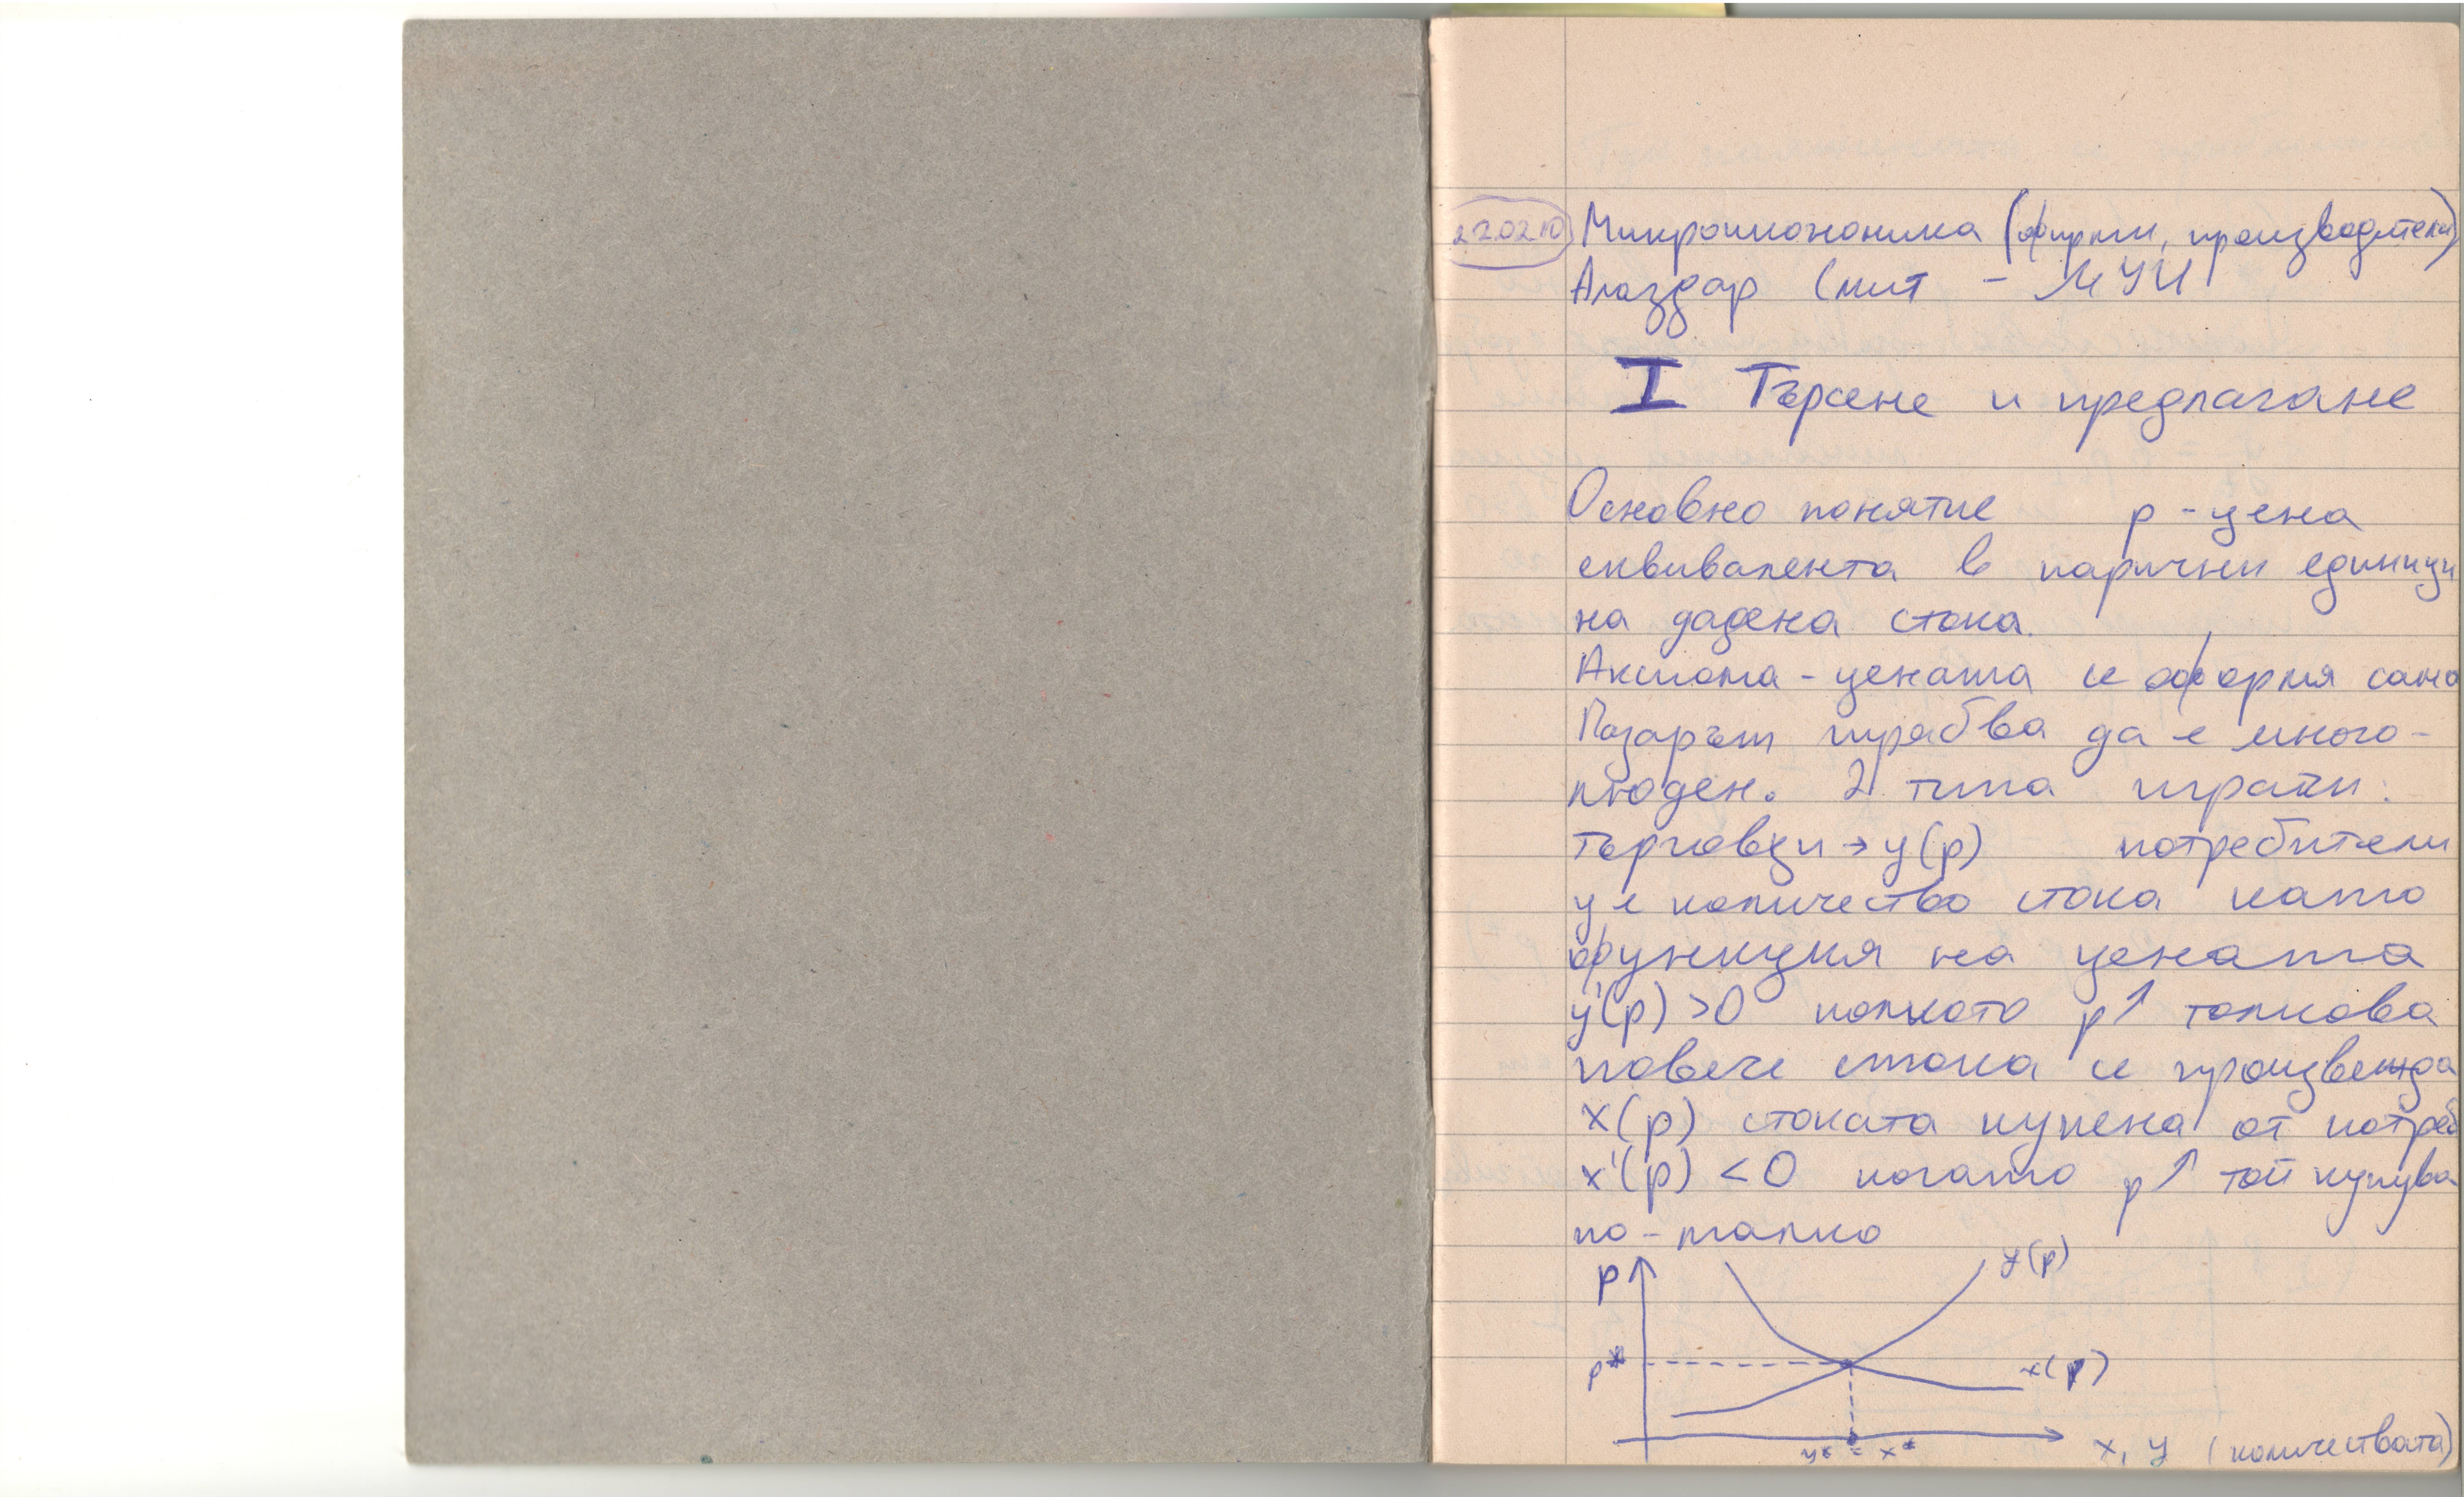 220210 Микроикономика (фирми, производители)
Алаздар Смит - МУИ
I Търсене и предлагане
Основно понятие p - цена
еквивалента в парични единици
на дадена стока.
Аксиома - цената се оформя сама
Пазарът трябва да е много-
люден. 2 типа играчи:
търговци → y(p) потребители
y е количество стока като
функция на цената
y'(p) >0 колкото p↑ толкова
повече стока се произвежда
x(p) стоката купена от потреб
x'(p) <0 когато p↑ той купува
по-малко
p y(p)
p* x(p)
y* = x* x, y (количествата)